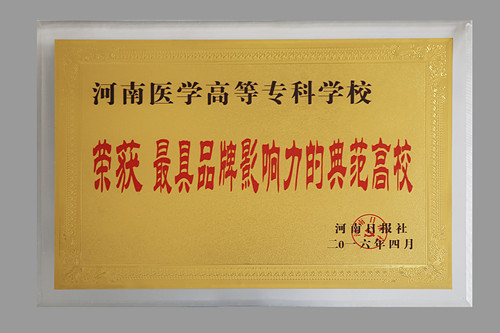 河南医学高等专科学校
荣获 最具品牌影响力的典范高校
河南日报社
二〇一六年四月